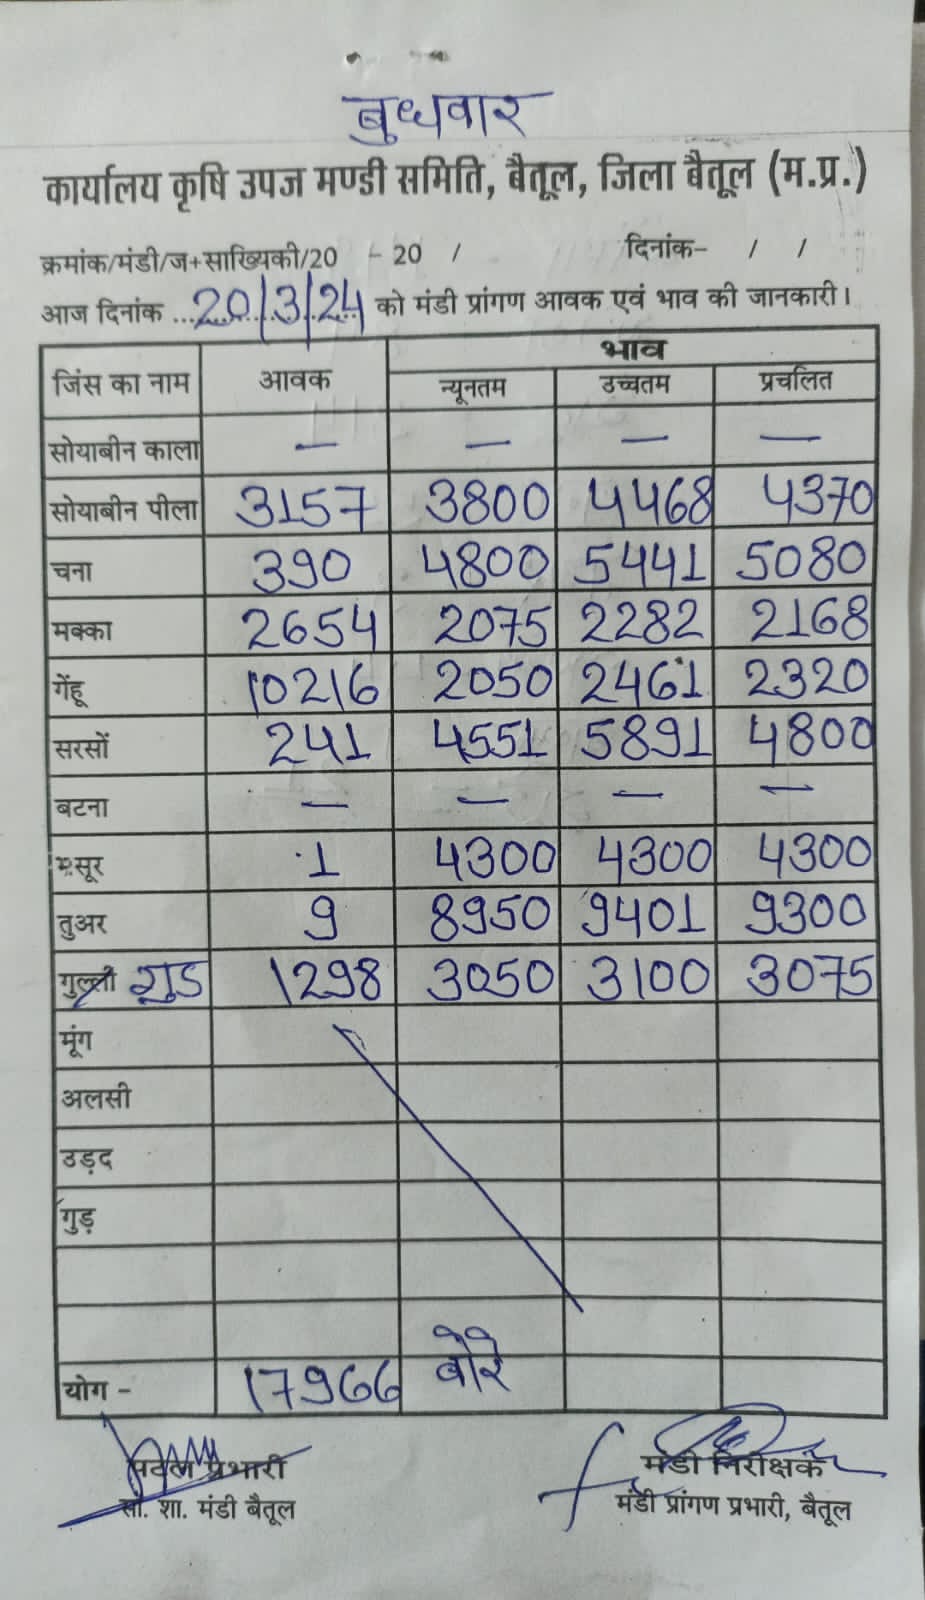 बुधवार
कार्यालय कृषि उपज मण्डी समिति, बैतूल, जिला बैतूल (म.प्र.)
क्रमांक/मंडी/ज+साख्यिकी/20 - 20 / दिनांक- / /
आज दिनांक ...20/3/24 को मंडी प्रांगण आवक एवं भाव की जानकारी।
भाव
जिंस का नाम आवक न्यूनतम उच्चतम प्रचलित
सोयाबीन काला — — — —
सोयाबीन पीला 3157 3800 4468 4370
चना 390 4800 5441 5080
मक्का 2654 2075 2282 2168
गेंहू 10216 2050 2461 2320
सरसों 241 4551 5891 4800
बटना — — — —
मसूर 1 4300 4300 4300
तुअर 9 8950 9401 9300
गुल्ली गुड 1298 3050 3100 3075
मूंग
अलसी
उड़द
गुड़
योग - 17966 बोरे
प्रभारी मंडी निरीक्षक
सां. शा. मंडी बैतूल मंडी प्रांगण प्रभारी, बैतूल